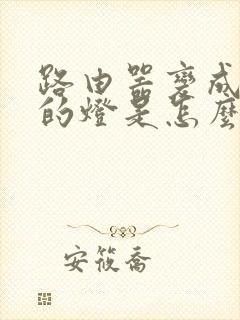 路由器变成
的燈是怎麼
安筱喬